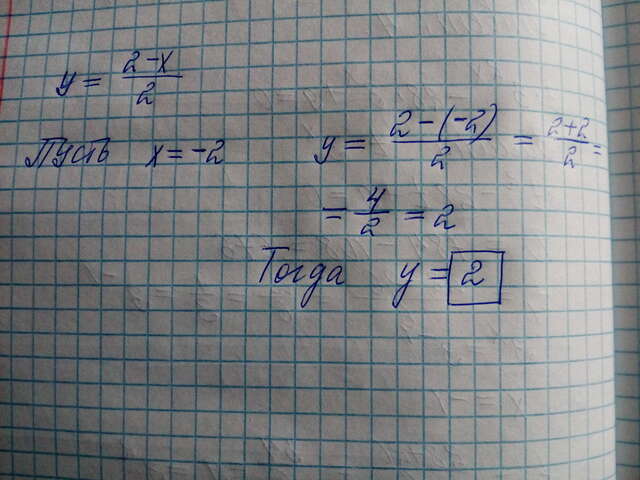 y = (2-x)/2
Пусть x = -2
y = (2-(-2))/2 = (2+2)/2 =
= 4/2 = 2
Тогда y = 2